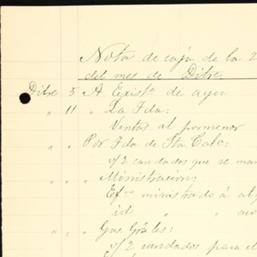 Nota de caja de la 2
del mes de Dibre
Dibre 5 A Exista de ayer
" 11 " La Fda:
Ventas al pormenor
" " Por Fda de Sta Cata:
s/2 candados que se man
" " " Ministracion:
Efvo ministrado á al
id " "
" " " Gas Grales:
s/2 candados para el